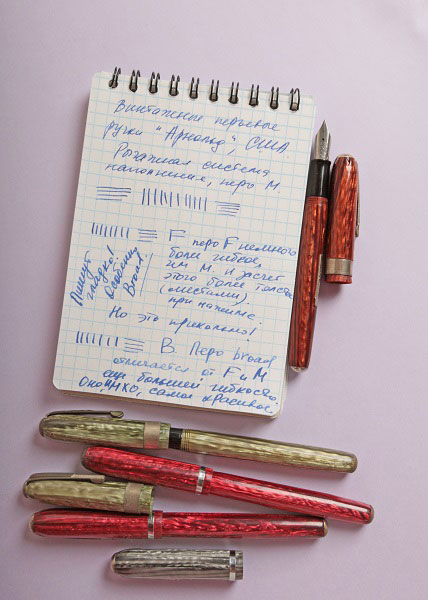 Винтажные перьевые
ручки "Арнольд", США.
Рычажная система
наполнения, перо М.
F перо F немного
более гибкое,
чем М. и за счет
этого более толстое
(местами).
при нажиме.
Но это прикольно!
Пишут
гладко!
Особенно
Broad!
B. Перо broad
отличается от F и М
еще большей гибкостью.
Оно, ИМХО, самое красивое.